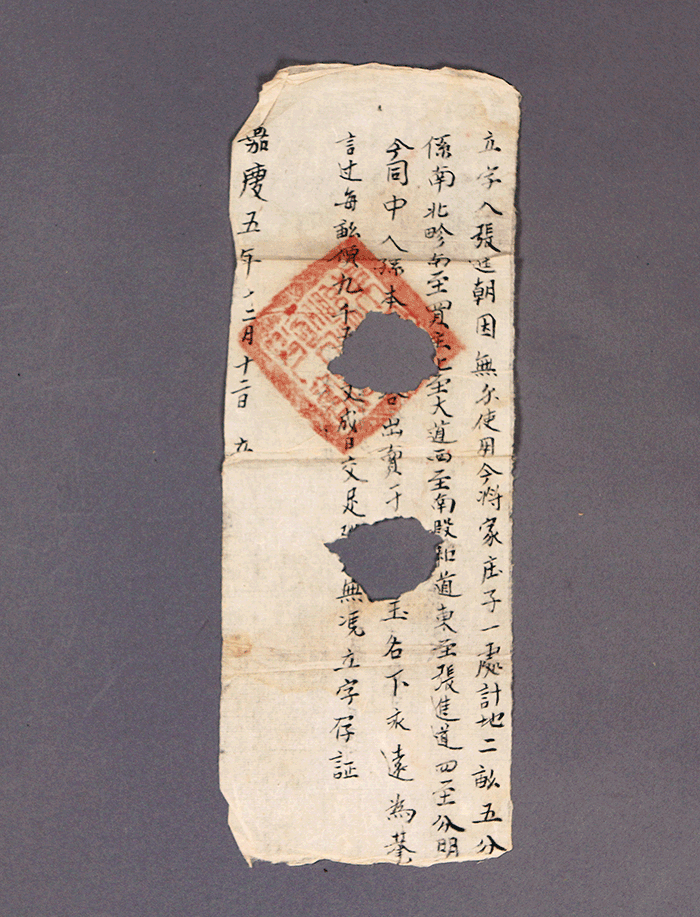 立字人張進朝因無錢使用今將家庄子一處計地二畝五分
係南北畛南至買主北至大道西至南股和道東至張進道四至分明
今同中人孫本 出賣于 玉名下永遠為業
言过每畝價九千 文成日交足 無凴立字存証
嘉慶五年十二月十二日 立